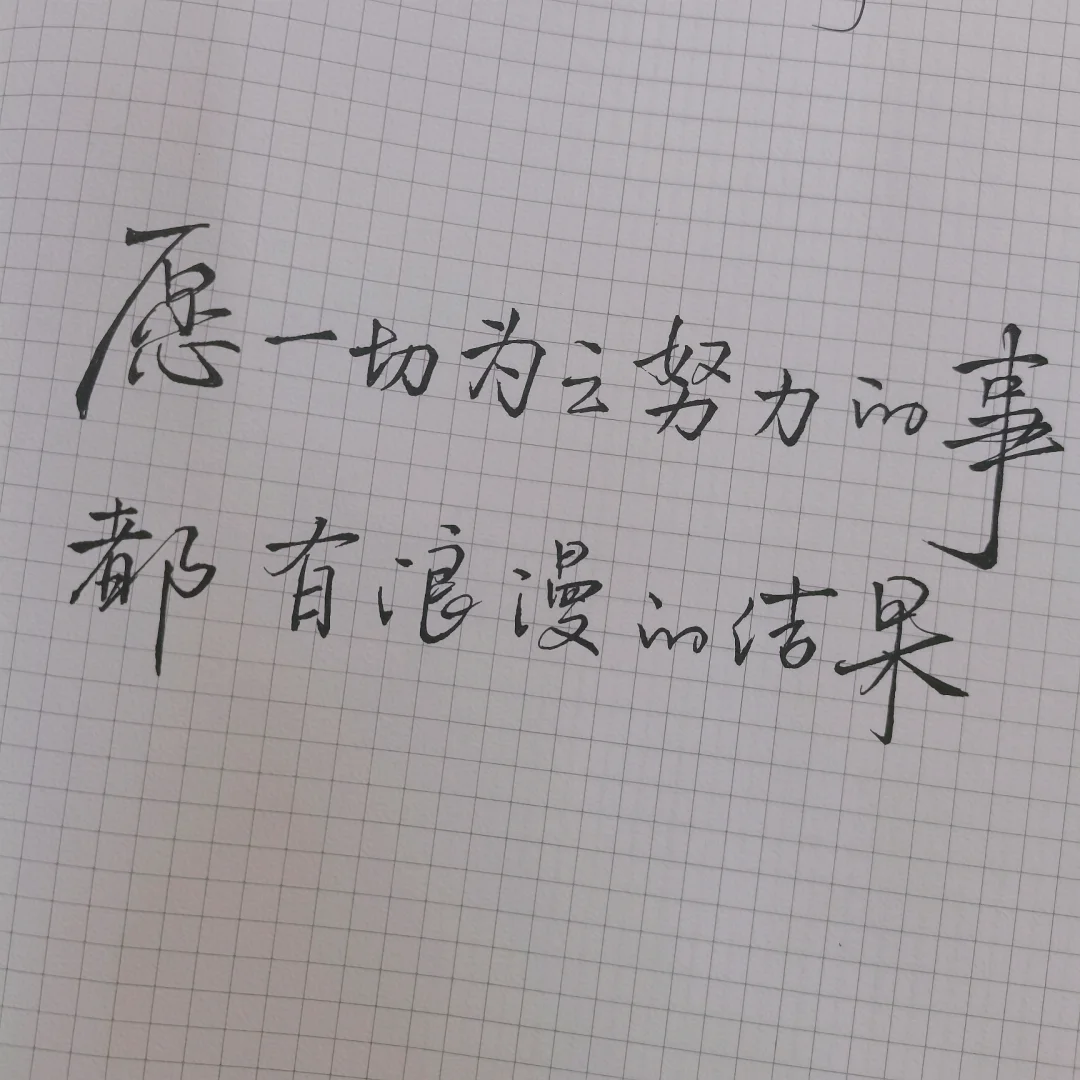 愿一切为之努力的事
都有浪漫的结果